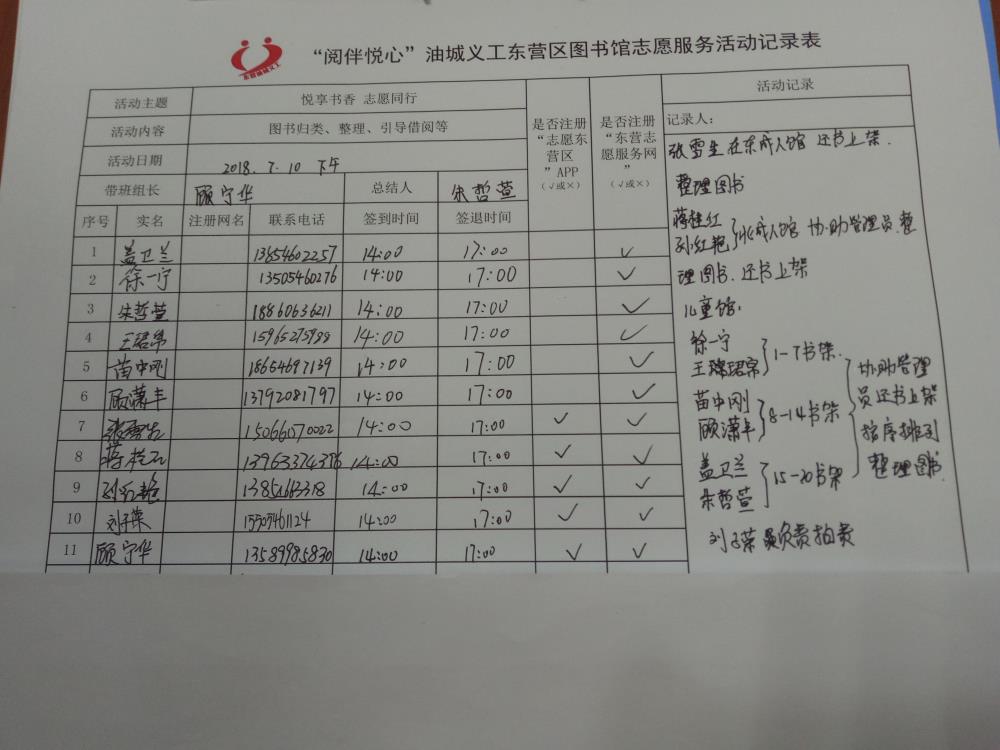 “阅伴悦心”油城义工东营区图书馆志愿服务活动记录表
东营油城义工
活动主题 悦享书香 志愿同行
活动内容 图书归类、整理、引导借阅等
活动日期 2018.7.10 下午
带班组长 顾宁华 总结人 朱哲萱
是否注册“志愿东营区”APP（√或×）
是否注册“东营志愿服务网”（√或×）
序号 实名 注册网名 联系电话 签到时间 签退时间
1 盖卫兰 13854602257 14:00 17:00 √
2 徐一宁 13505460276 14:00 17:00 √
3 朱哲萱 18860636211 14:00 17:00 √
4 王珺帟 15965275988 14:00 17:00 √
5 苗中刚 18654697139 14:00 17:00 √
6 顾潇丰 13792081797 14:00 17:00 √
7 张雪生 15066070022 14:00 17:00 √ √
8 蒋桂红 13963374396 14:00 17:00 √ √
9 孙红艳 14:00 17:00 √ √
10 刘子荣 14:00 17:00 √ √
11 顾宁华 13589985830 14:00 17:00 √ √
活动记录
记录人：
张雪生在东成人馆 还书上架.
整理图书
蒋桂红
孙红艳}北成人馆 协助管理员.整
理图书.还书上架
儿童馆:
徐一宁
王珺帟}1-7书架.
苗中刚
顾潇丰}8-14书架
盖卫兰
朱哲萱}15-20书架
协助管理
员还书上架
按序排列
整理图书
刘子荣负责拍费